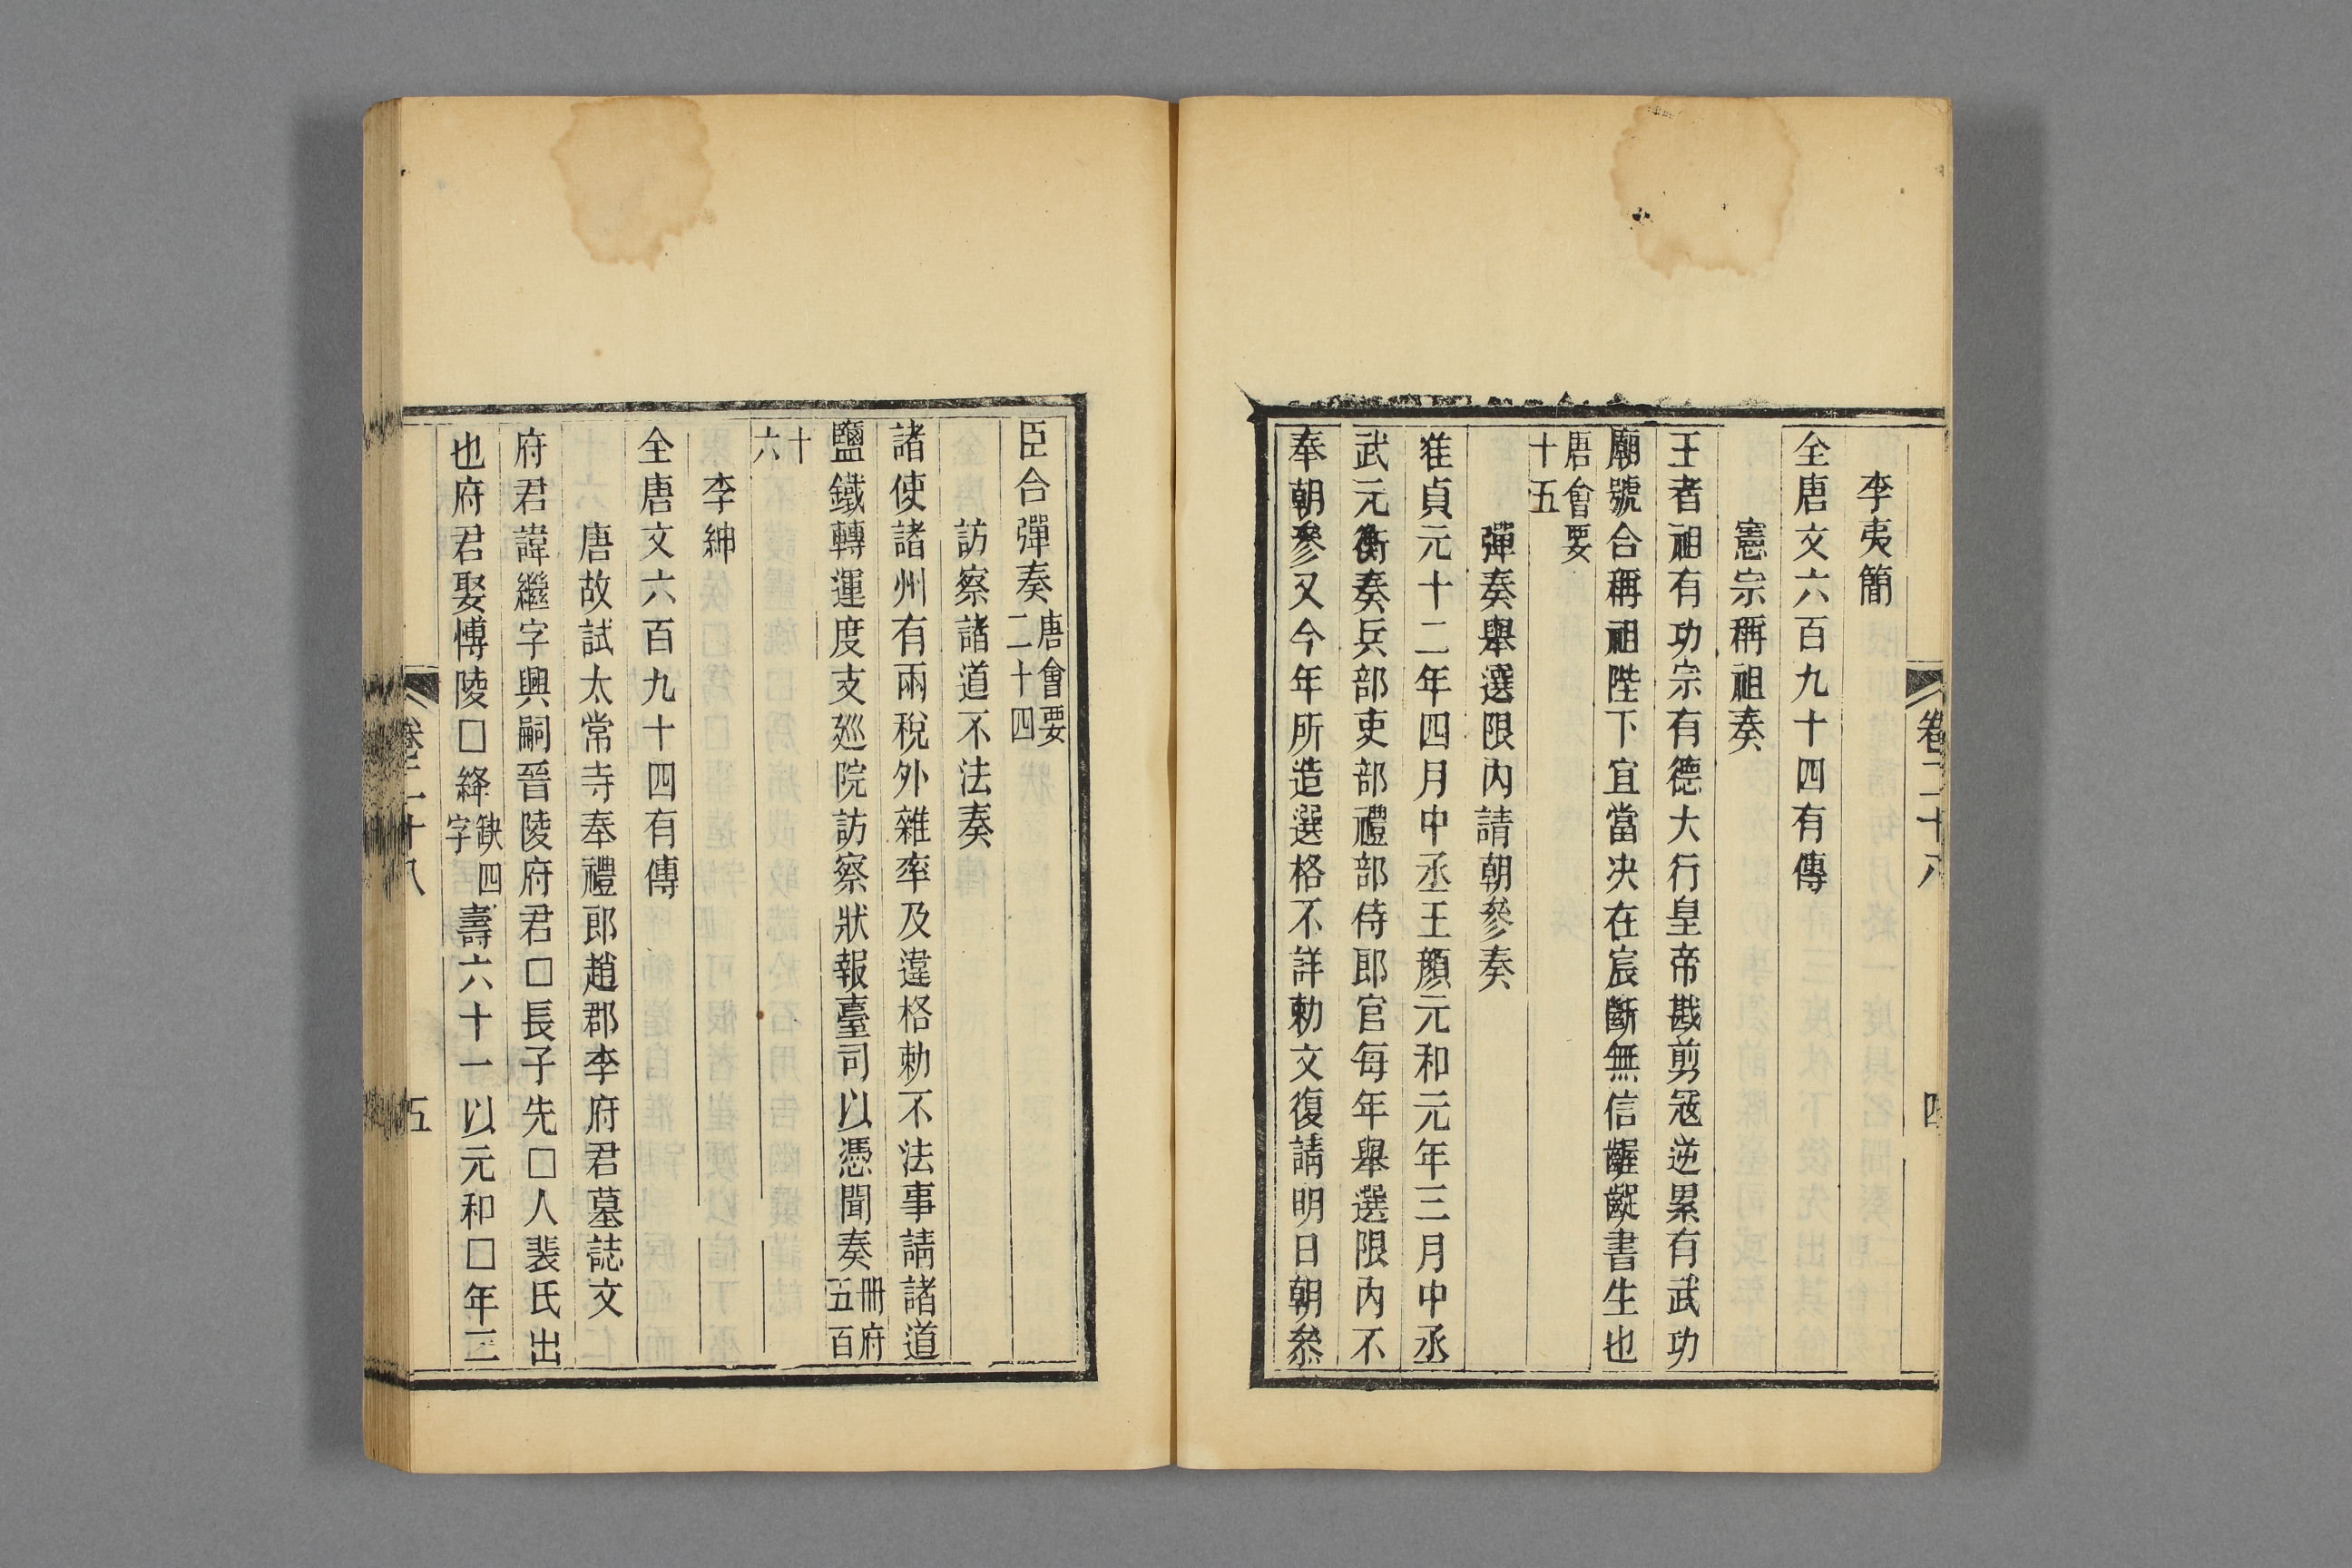 卷二十八
四
李夷簡
全唐文六百九十四有傳
憲宗稱祖奏
王者祖有功宗有德大行皇帝戡剪寇逆累有武功
廟號合稱祖陛下宜當决在宸斷無信齷齪書生也
唐會要
十五
彈奏舉選限內請朝參奏
准貞元十二年四月中丞王顏元和元年三月中丞
武元衡奏兵部吏部禮部侍郎官每年舉選限內不
奉朝參又今年所造選格不詳勅文復請明日朝叅
臣合彈奏唐會要
二十四
訪察諸道不法奏
諸使諸州有兩稅外雜率及違格勅不法事請諸道
鹽鐵轉運度支廵院訪察狀報臺司以憑聞奏冊府
五百
十
六
李紳
全唐文六百九十四有傳
唐故試太常寺奉禮郎趙郡李府君墓誌文
府君諱繼字興嗣晉陵府君□長子先□人裴氏出
也府君娶博陵□絳缺四
字壽六十一以元和□年三
卷二十八
五